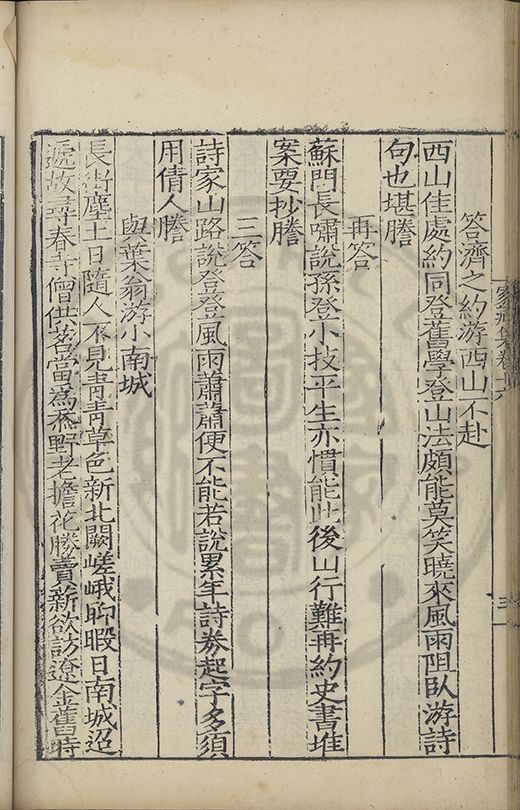 家藏集卷十六
答濟之約游西山不赴
西山佳處約同登舊學登山法頗能莫笑曉來風雨阻臥游詩
句也堪謄
再答
蘇門長嘯說孫登小技平生亦慣能此後山行難再約史書堆
案要抄謄
三答
詩家山路說登登風雨蕭蕭便不能若說累年詩券起字多須
用倩人謄
與葉翁游小南城
長街塵土日隨人不見青青草色新北闕嵯峨聊暇日南城迢
遞故尋春寺僧供茗當為黍野老擔花勝賣薪欲訪遼金舊時